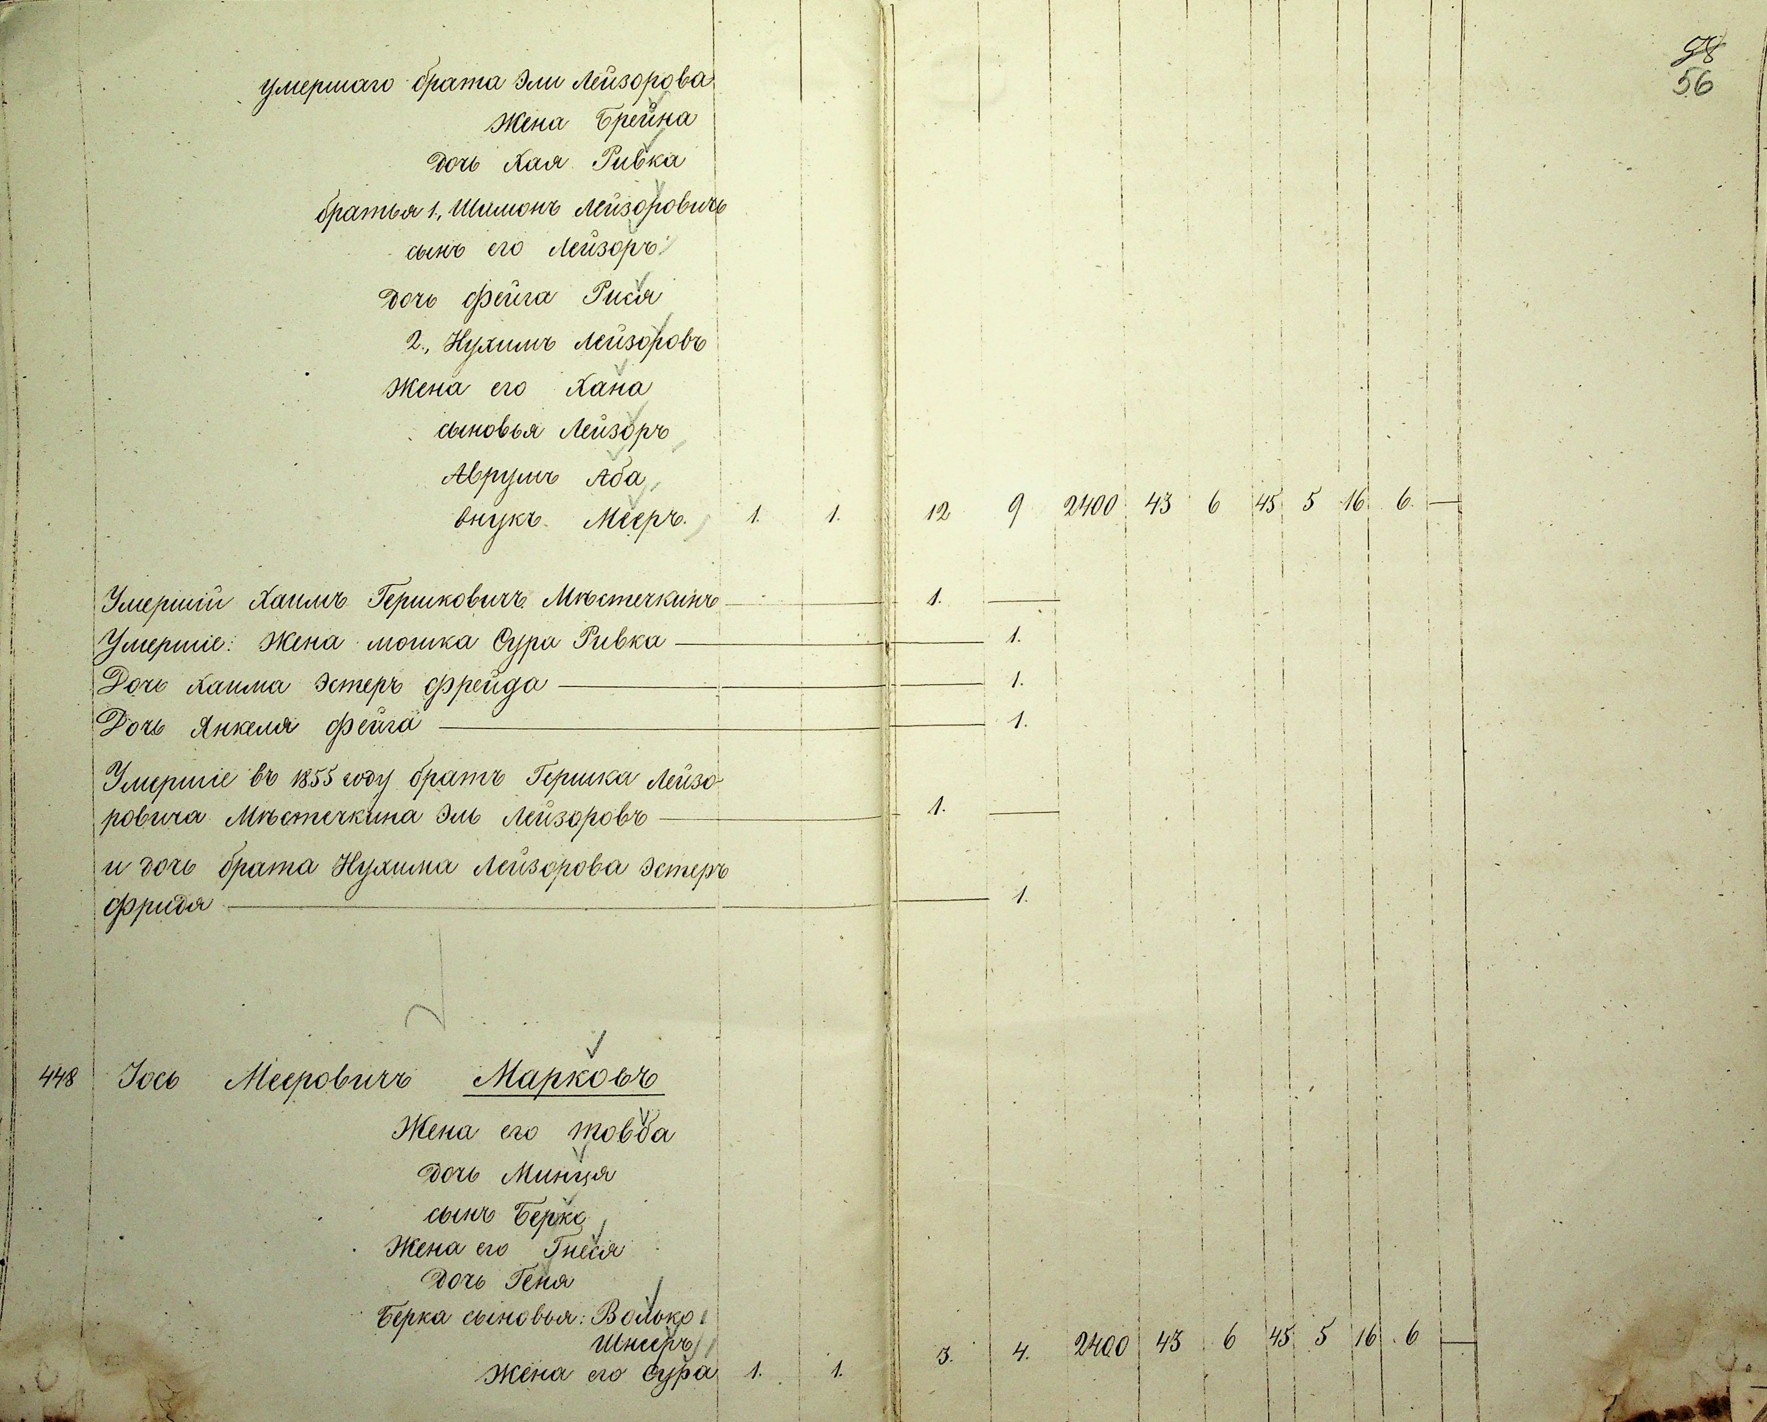 98
56
умершаго брата Эли Лейзорова
Жена Брейна
Дочь Хая Ривка
братья 1, Шимонъ Лейзоровичъ
сынъ его Лейзоръ
Дочь Фейга Рися
2., Нухимъ Лейзоровъ
Жена его Хана
сыновья Лейзоръ
Аврумъ Аба
внукъ Мееръ. 1. 1. 12 9 2400 43 6 45 5 16 6 —
Умершій Хаимъ Гершковичъ Мѣстечкинъ — 1. —
Умершіе: Жена мошка Сура Ривка — 1.
Дочь Хаима Эстеръ Фрейда — 1.
Дочь Янкеля Фейга — 1.
Умершіе въ 1855 году братъ Гершка Лейзо-
ровича Мѣстечкина Эль Лейзоровъ — 1. —
и дочь брата Нухима Лейзорова Эстеръ
Фридя — 1.
448 Іось Мееровичъ Марковъ
Жена его Товба
Дочь Минця
сынъ Берко
Жена его Гнеся
Дочь Геня
Берка сыновья: Волько
Шнееръ
Жена его Сура 1. 1. 3. 4. 2400 43 6 45 5 16 6 —